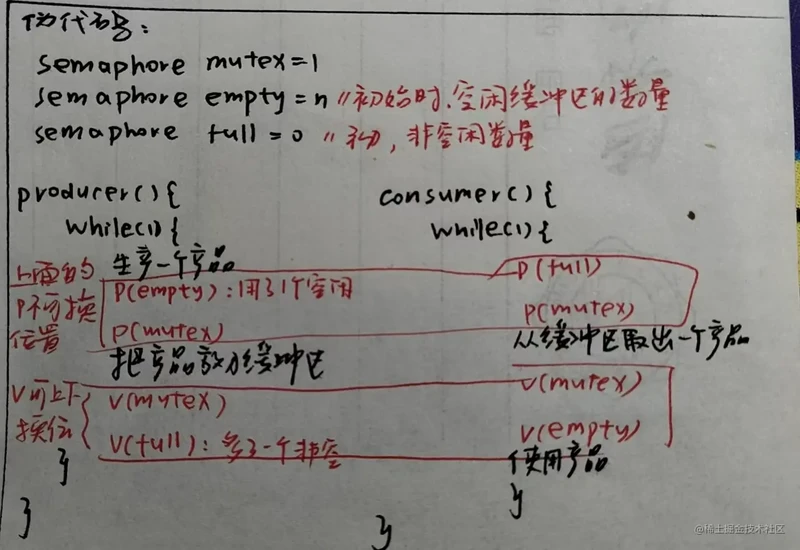 伪代码:
semaphore mutex=1
semaphore empty=n //初始时,空闲缓冲区的数量
semaphore full=0 //初,非空闲数量
producer(){
while(1){
生产一个产品
上面的P不可换位置
P(empty):用了1个空闲
P(mutex)
把产品放入缓冲区
V可上下换位
V(mutex)
V(full):多了一个非空
}
}
consumer(){
while(1){
P(full)
P(mutex)
从缓冲区取出一个产品
V(mutex)
V(empty)
使用产品
}
}
@稀土掘金技术社区